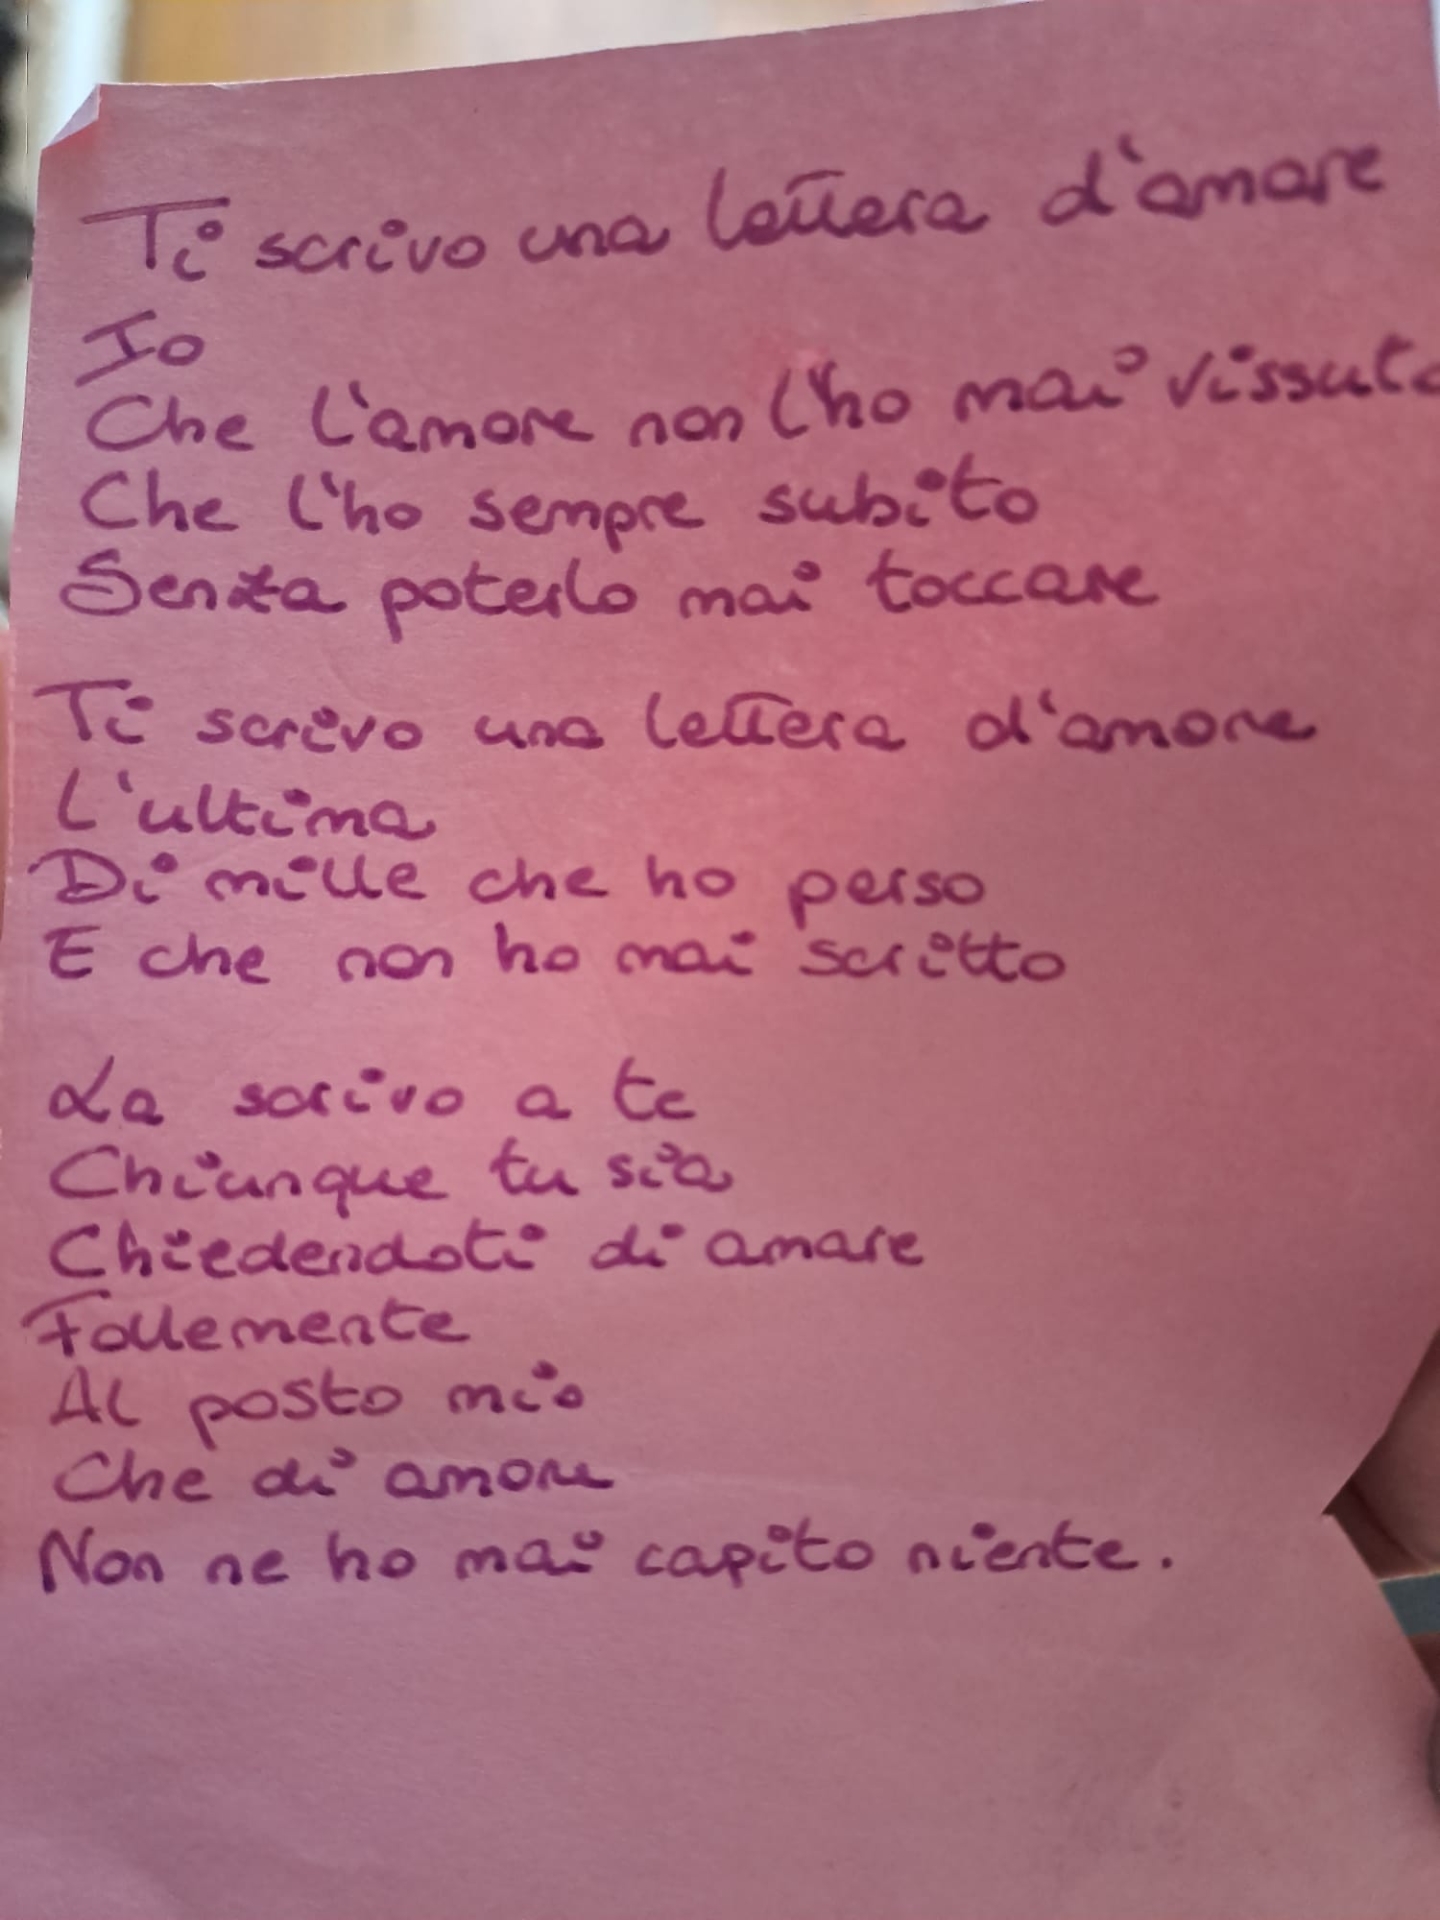 Ti scrivo una lettera d'amore
Io
Che l'amore non l'ho mai vissuto
Che l'ho sempre subito
Senza poterlo mai toccare
Ti scrivo una lettera d'amore
L'ultima
Di mille che ho perso
E che non ho mai scritto
La scrivo a te
Chiunque tu sia
Chiedendoti di amare
Follemente
Al posto mio
Che di amore
Non ne ho mai capito niente.